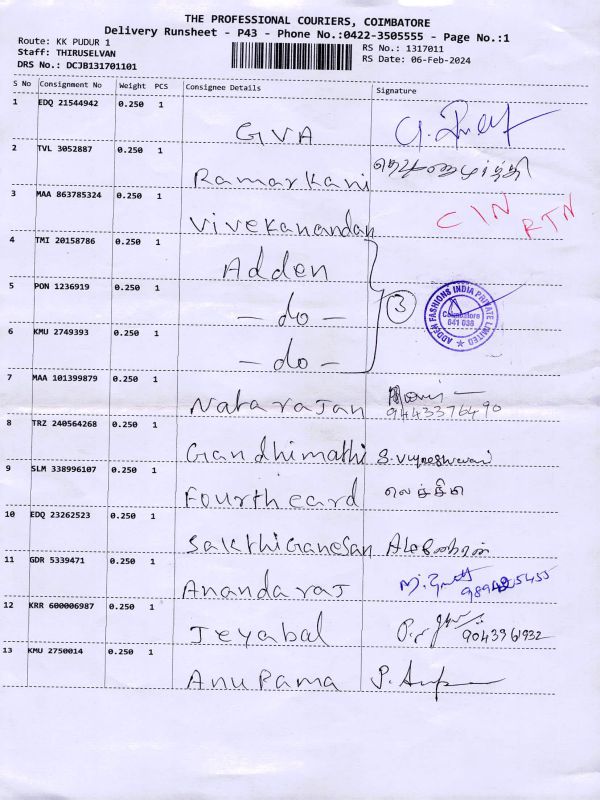 THE PROFESSIONAL COURIERS, COIMBATORE
Delivery Runsheet - P43 - Phone No.:0422-3505555 - Page No.:1
Route: KK PUDUR 1
Staff: THIRUSELVAN
DRS No.: DCJB131701101
RS No.: 1317011
RS Date: 06-Feb-2024
S No Consignment No Weight PCS Consignee Details Signature
1 EDQ 21544942 0.250 1 GVA
2 TVL 3052887 0.250 1 Ramarkani
3 MAA 863785324 0.250 1 Vivekanandan CIN RTN
4 TMI 20158786 0.250 1 Adden
5 PON 1236919 0.250 1 - do - 3
ADDEN FASHIONS INDIA PRIVATE LIMITED
Coimbatore
641 038
6 KMU 2749393 0.250 1 - do -
7 MAA 101399879 0.250 1 Natarajan 9443376490
8 TRZ 240564268 0.250 1 Gandhimathi
9 SLM 338996107 0.250 1 Fourtheard
10 EDQ 23262523 0.250 1 SakthiGanesan
11 GDR 5339471 0.250 1 Anandaraj
12 KRR 600006987 0.250 1 Jeyabal 9043961932
13 KMU 2750014 0.250 1 Anupama